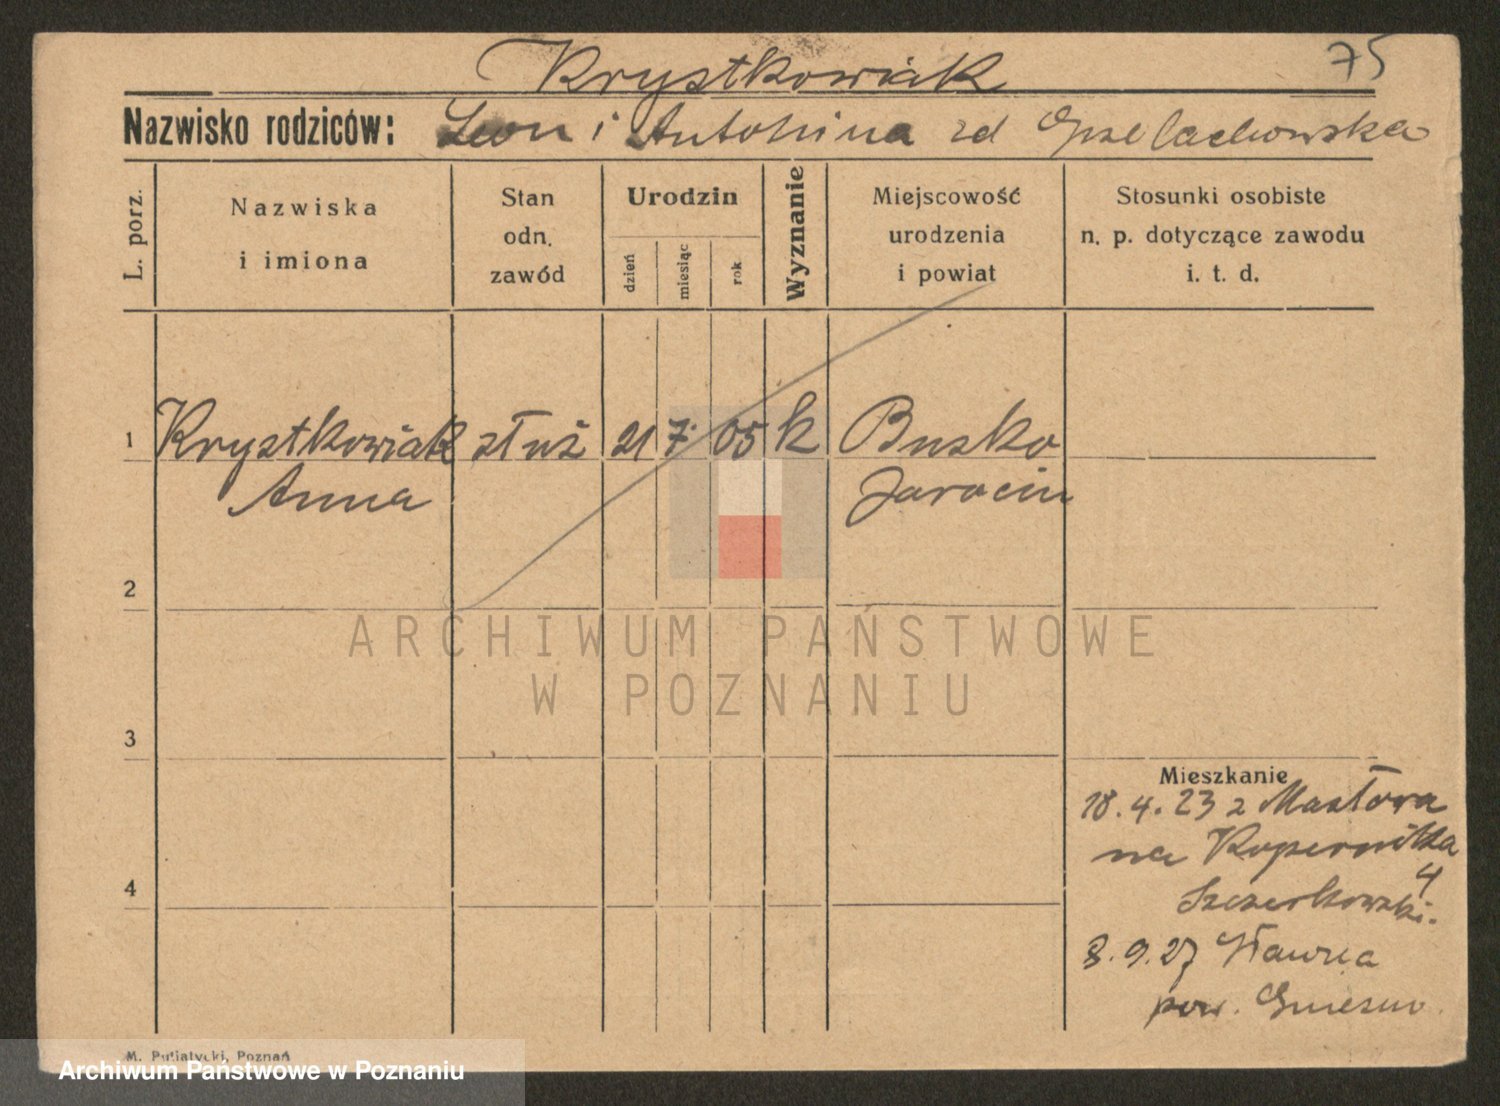 Krystkowiak
75
Nazwisko rodziców: Leon i Antonina zd Grzelachowska
L. porz.
Nazwiska i imiona
Stan odn. zawód
Urodzin
dzień
miesiąc
rok
Wyznanie
Miejscowość urodzenia i powiat
Stosunki osobiste n. p. dotyczące zawodu i. t. d.
1 Krystkowiak służ 21 7 05 k Busko
Anna Jarocin
2
3
4
Mieszkanie
18.4.23 z
na Kopernika
4
8.9.27 Sławna
pow. Gniezno
M. Putiatycki, Poznań
ARCHIWUM PAŃSTWOWE
W POZNANIU
Archiwum Państwowe w Poznaniu